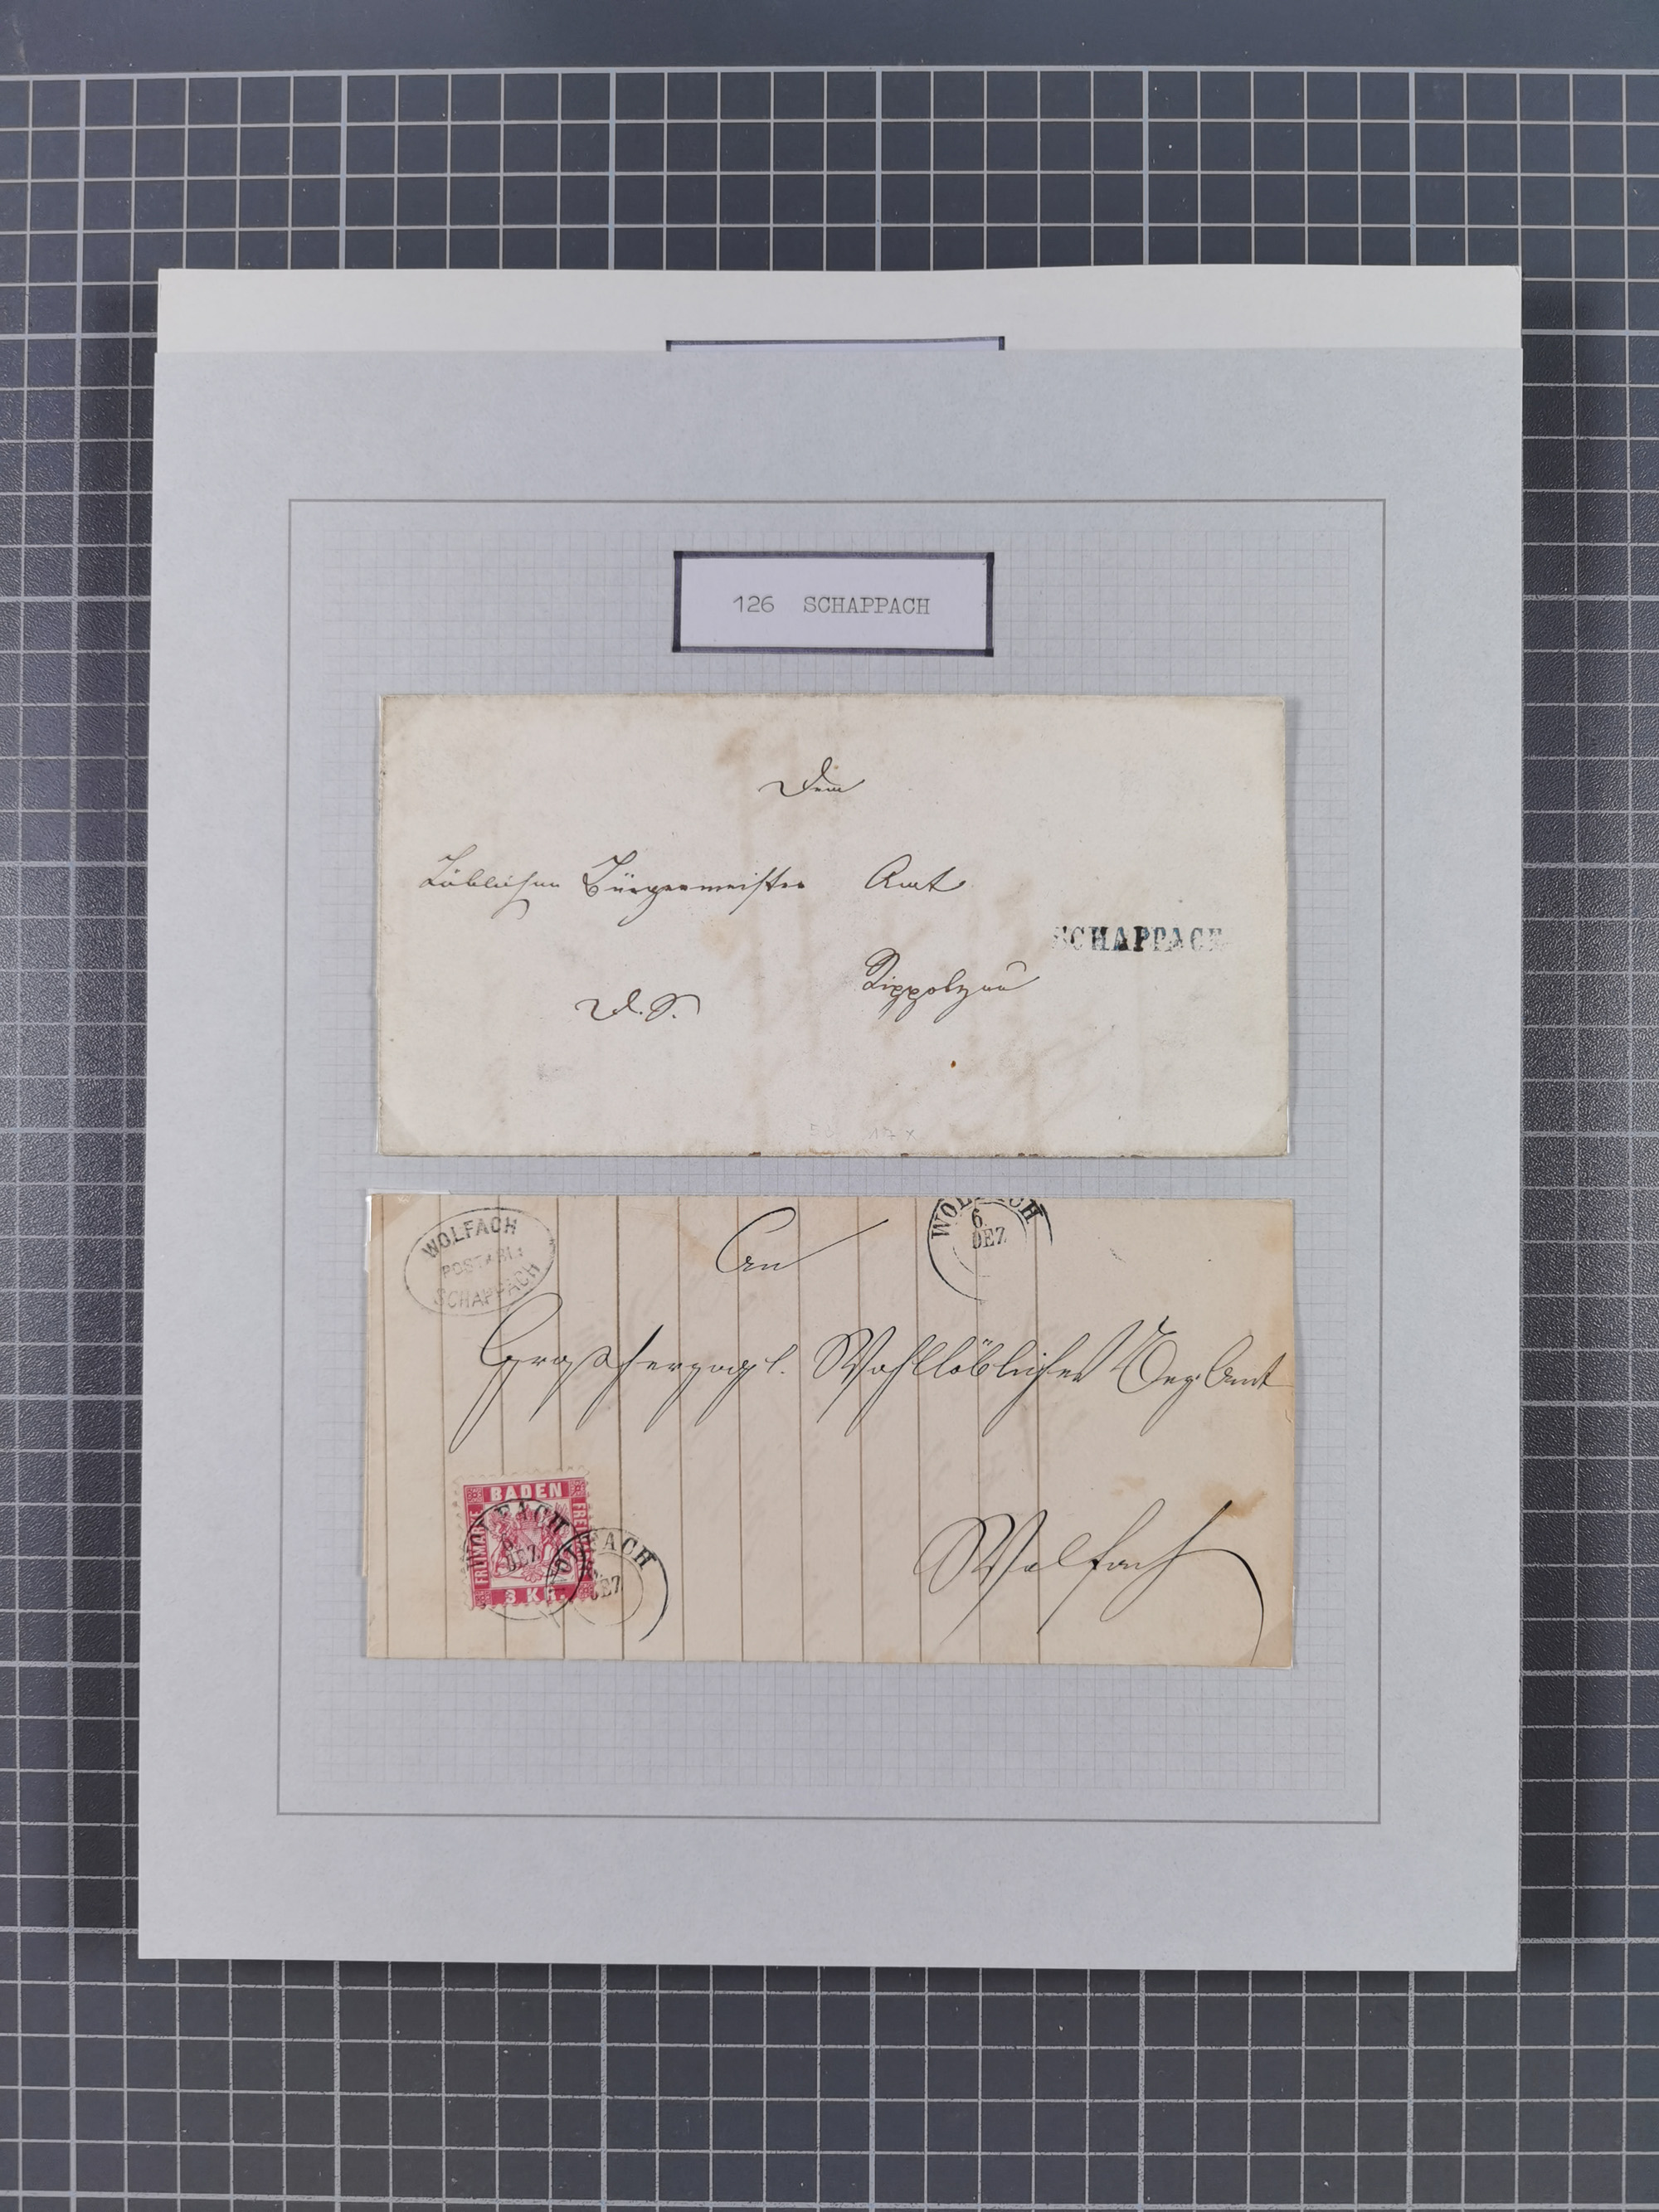 126 SCHAPPACH
Dem
Löblichen Bürgermeister Amt
SCHAPPACH
Rippolzau
D.S.
17 x
WOLFACH
POSTABL:
SCHAPPACH
An
WOLFACH
6
DEZ
Großherzogl. Wohllöbliches Bez. Amt
BADEN
FREIMARKE
FREI
3 KR.
WOLFACH
6
DEZ
WOLFACH
DEZ
Wolfach